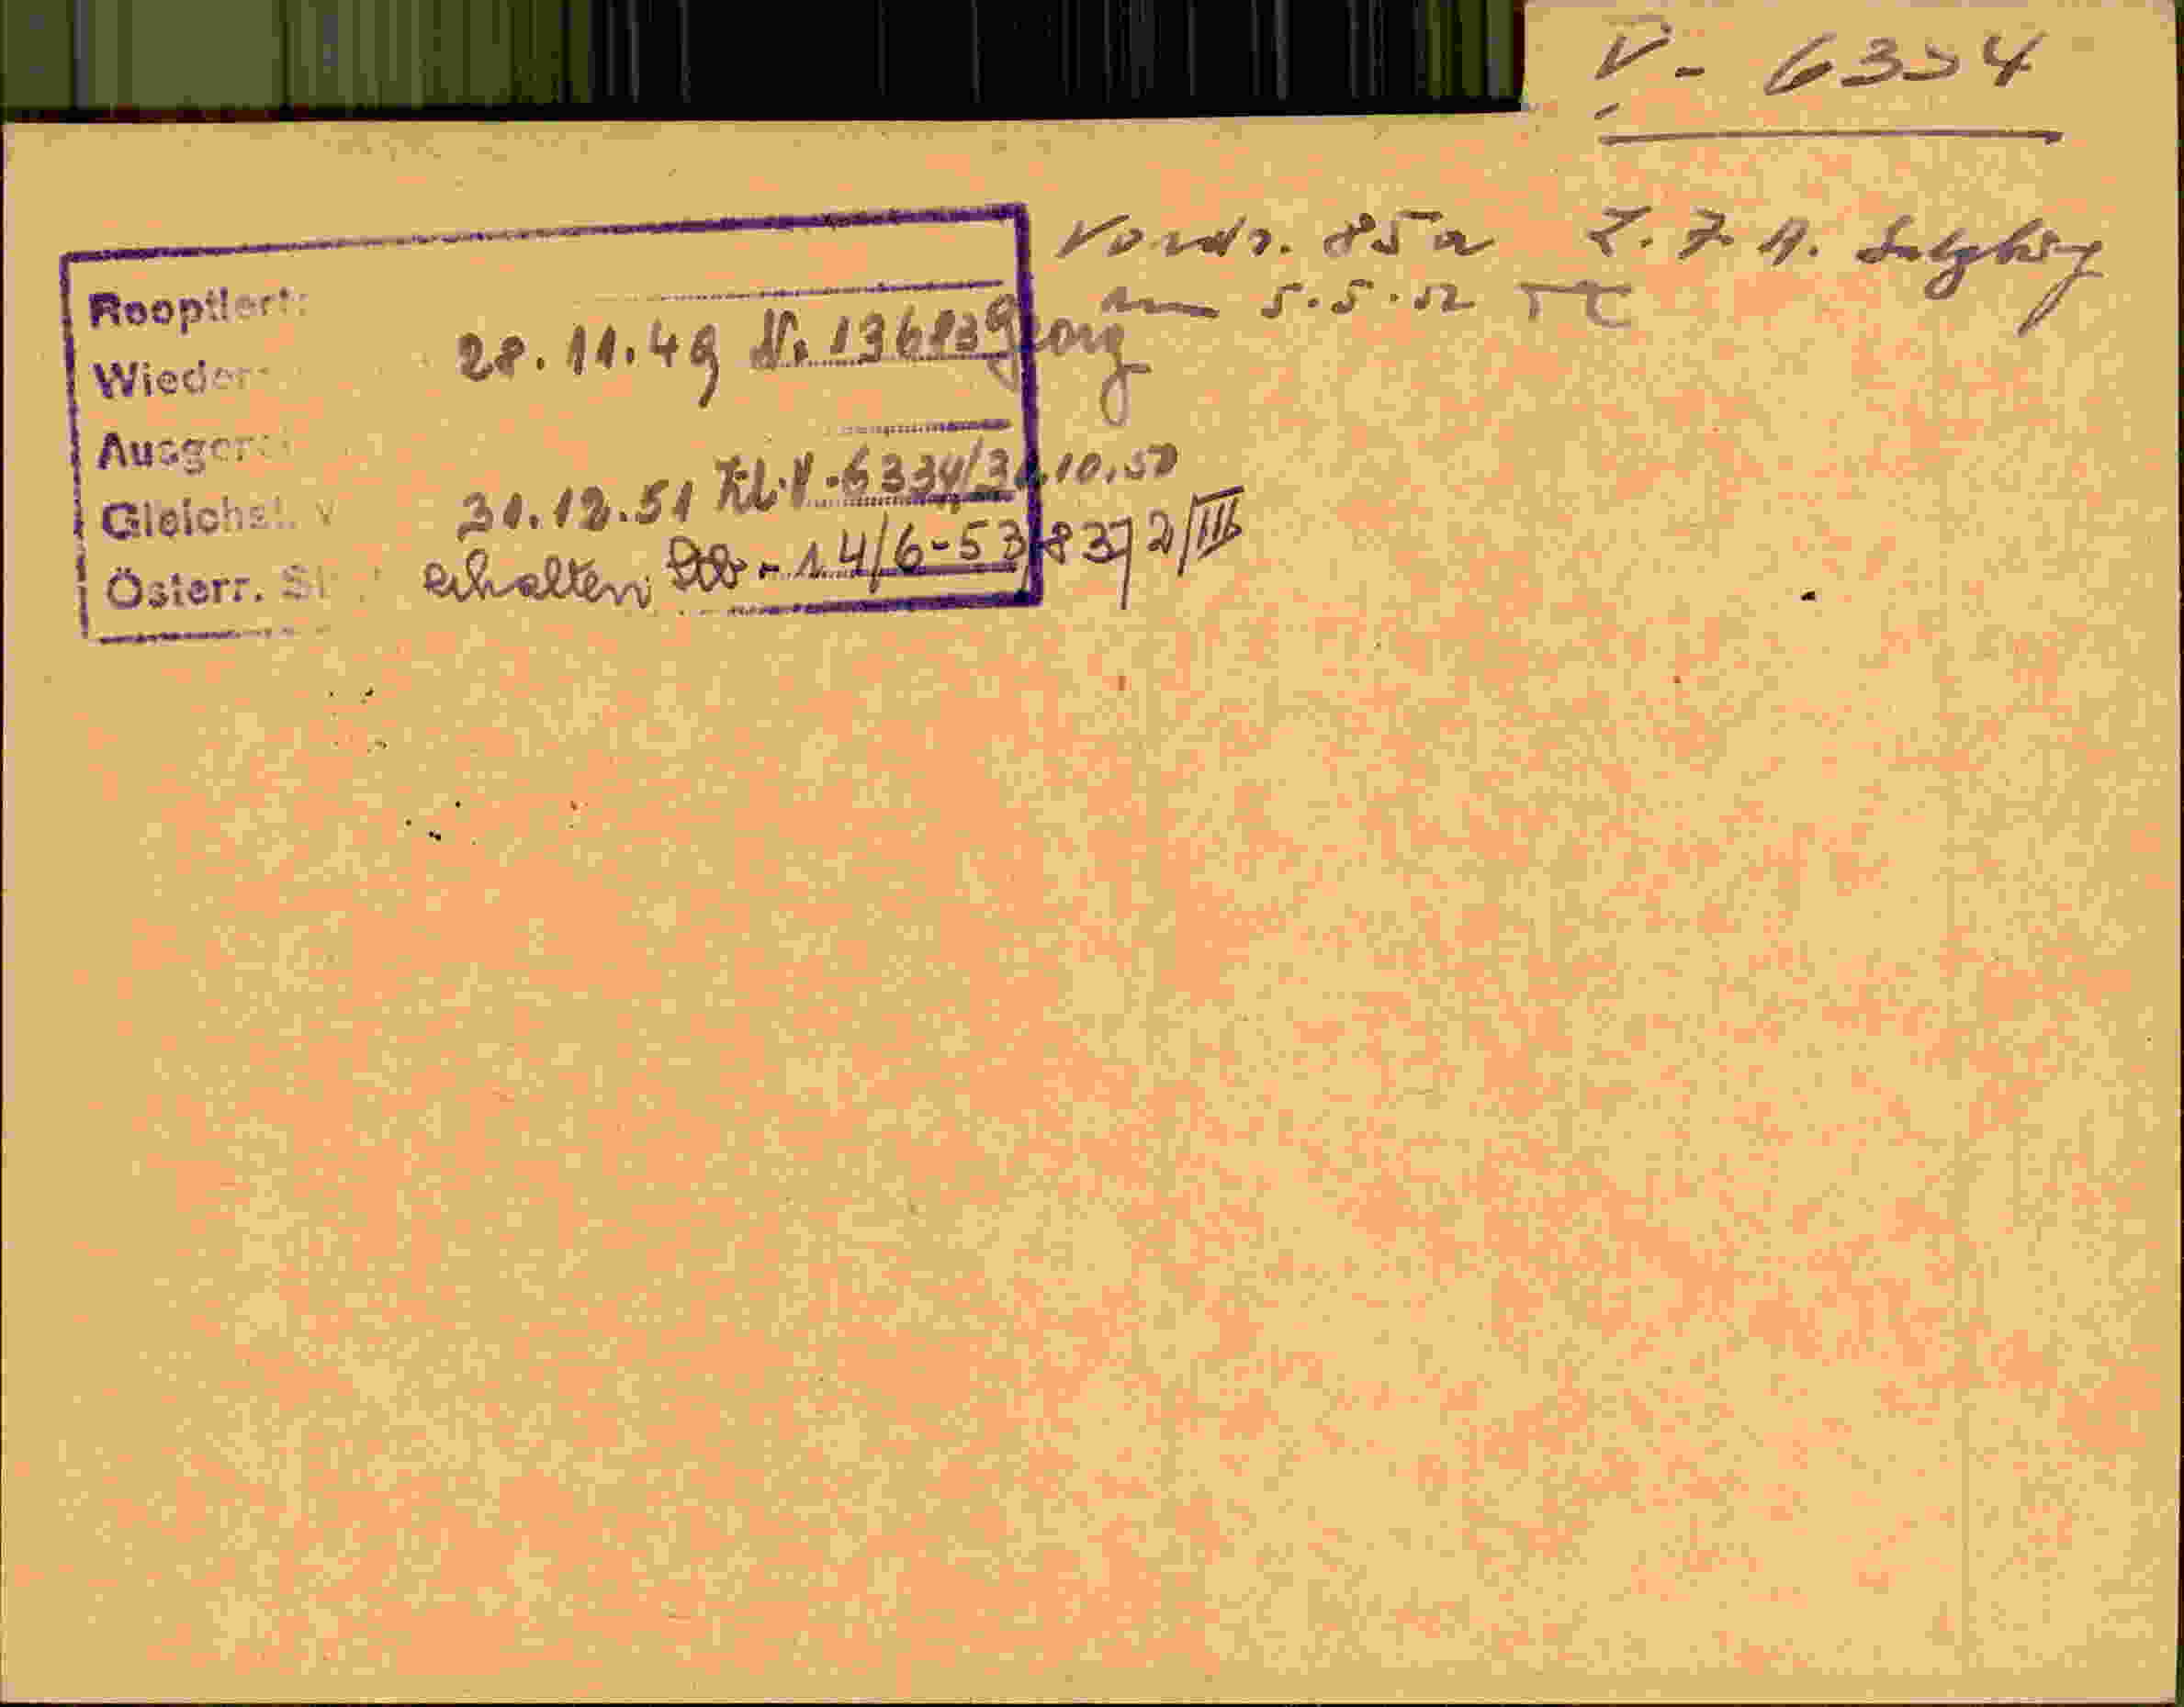 V - 6334
Vordr. 85a Z. F. A. Salzburg
am 5.5.52
Reoptiert:
Wieder
28.11.49 N. 136839
Ausger
Gleichst. v 31.12.51 Kl. V. 6334/31.10.50
Österr. St erhalten - 14/6-53 8372/III